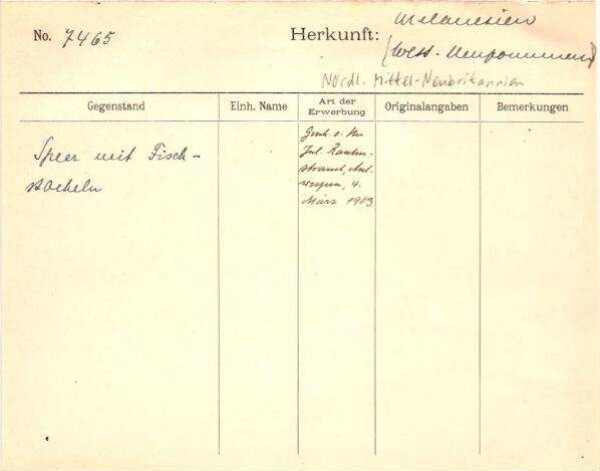 No. 7465
Herkunft: Melanesien
(West-Neupommern)
Nördl. Mittel-Neubritannien
Gegenstand
Einh. Name
Art der
Erwerbung
Originalangaben
Bemerkungen
Speer mit Fisch-
stacheln
Gesch. v. Hn
Jul. Rauten-
strauch, Ant-
werpen, 4.
März 1903